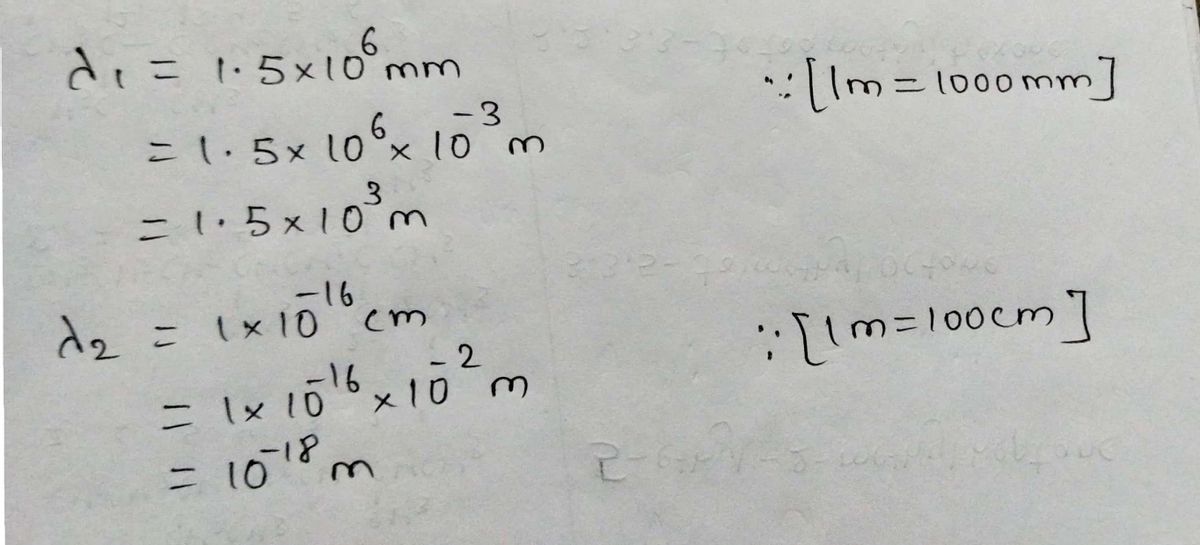 λ₁ = 1.5×10⁶ mm ∵ [1m = 1000mm]
= 1.5× 10⁶ × 10⁻³ m
= 1.5×10³ m
λ₂ = 1×10⁻¹⁶ cm ∵ [1m=100cm]
= 1× 10⁻¹⁶ ×10⁻² m
= 10⁻¹⁸ m